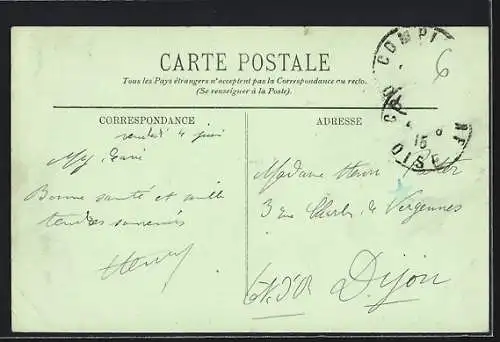 CARTE POSTALE
Tous les Pays étrangers n'acceptent pas la Correspondance au recto.
(Se renseigner à la Poste).
CORRESPONDANCE
4 juin
Bonne santé et mille
tendres souvenirs
Henry
ADRESSE
Madame Henri
3 rue Charles de Vergennes
Dijon
Côte d'Or
COMPI
OISE
15
6